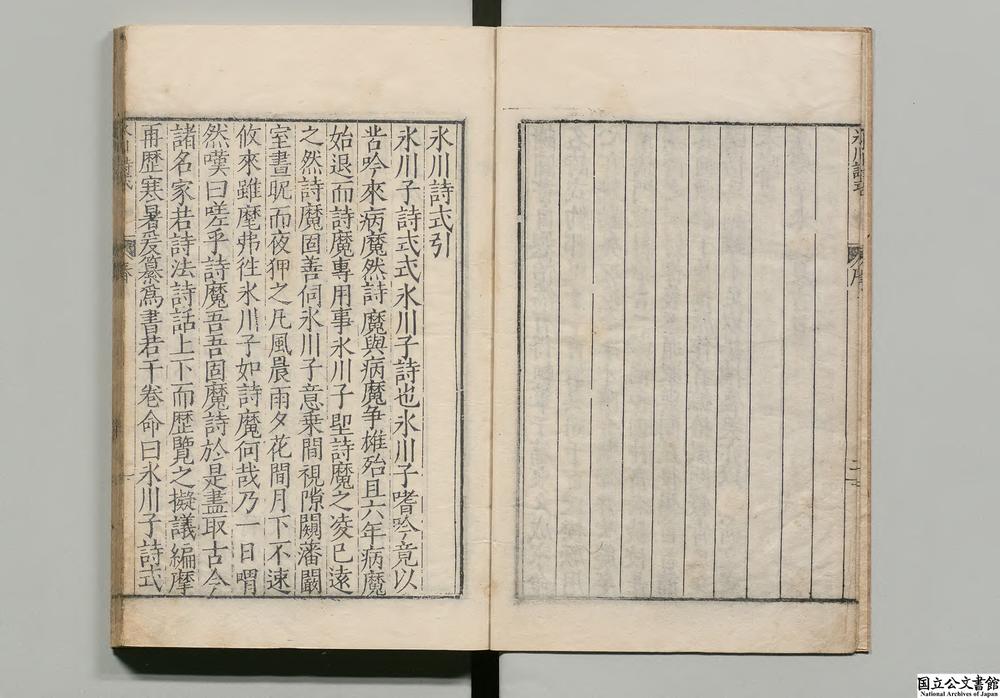 氷川詩式
序
二
氷川詩式引
氷川子詩式式氷川子詩也氷川子嗜吟竟以
苦吟來病魔然詩魔與病魔爭雄殆且六年病魔
始退而詩魔專用事氷川子聖詩魔之凌已遠
之然詩魔固善伺氷川子意乗間視隙闞藩闞
室晝昵而夜狎之凡風晨雨夕花間月下不速
攸來雖麾弗徃氷川子如詩魔何哉乃一日喟
然嘆曰嗟乎詩魔吾吾固魔詩於是盡取古今
諸名家若詩法詩話上下而歴覽之擬議編摩
再歴寒暑爰纂爲書若干卷命曰氷川子詩式
国立公文書館
National Archives of Japan